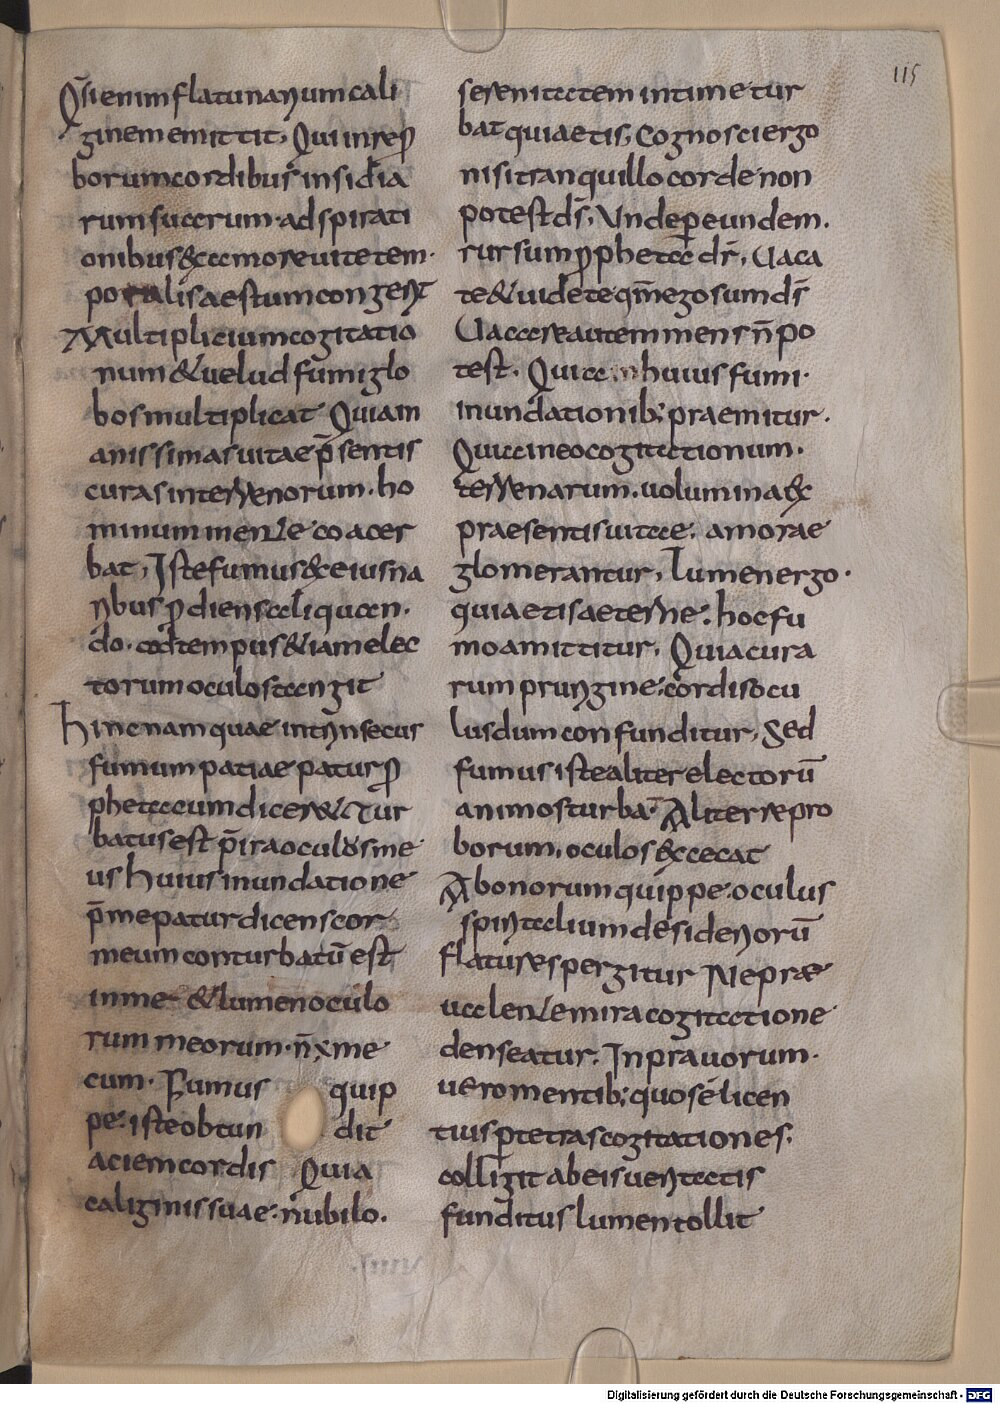 115
Q̄si enim flatu narium cali
ginem emittit, Qui in rep̱
borum cordibus insidia
rum suarum · adspirati
onibus & amore uitae tem·
poralis aestum congerit
Multiplicium cogitatio
num & uelud fumi glo
bos multiplicat Quia in
anissimas uitae p̄sentis
curas in terrenorum · ho
minum mente coacer
bat, Iste fumus & eius na
ribus p̱diens caliquan·
do · ad tempus & iam elec
torum oculos tangit
Hinc nam quae intrinsecus
fumum patiae patur p̱
pheta cum dicer& Tur
batus est p̄ ira oculus me
us huius inundatione
p̄mepatur dicens cor
meum conturbatū est
in me & lumen oculo
rum meorum · n̄ x̄ me
cum · Fumus quip
pe iste obtun dit
aciem cordis Quia
caliginis suae nubilo.
serenitatem intime tur
bat quiaetis, Cognosci ergo
nisi tranquillo corde non
potest d̄s, Unde p̱ eundem.
rursum p̱pheta dr̄, Uaca
te & uidete qm̄ ego sum d̄s
Uacare autem mens n̄ po
test. Quia huius fumi·
inundationib; praemitur.
Quia in eo cogitationum.
terrenarum. uolumina &
praesentis uitae. amorae
glomerantur, Lumen ergo·
quiaetis aeterne. hoc fu
mo amittitur. Quia cura
rum prurigine cordis ocu
lus dum confunditur, Sed
fumus iste aliter electorū
animos turba⁠t Aliter repro
borum, oculos & cecat
A bonorum quippe oculus
spiritalium desideriorū
flatu respergitur Ne præ
ualente mira cogitatione
denseatur. In prauorum·
uero mentib; quos é licen
tius p̱ tetras cogitationes.
colligit ab eis ueritatis
funditus lumen tollit
Digitalisierung gefördert durch die Deutsche Forschungsgemeinschaft - DFG